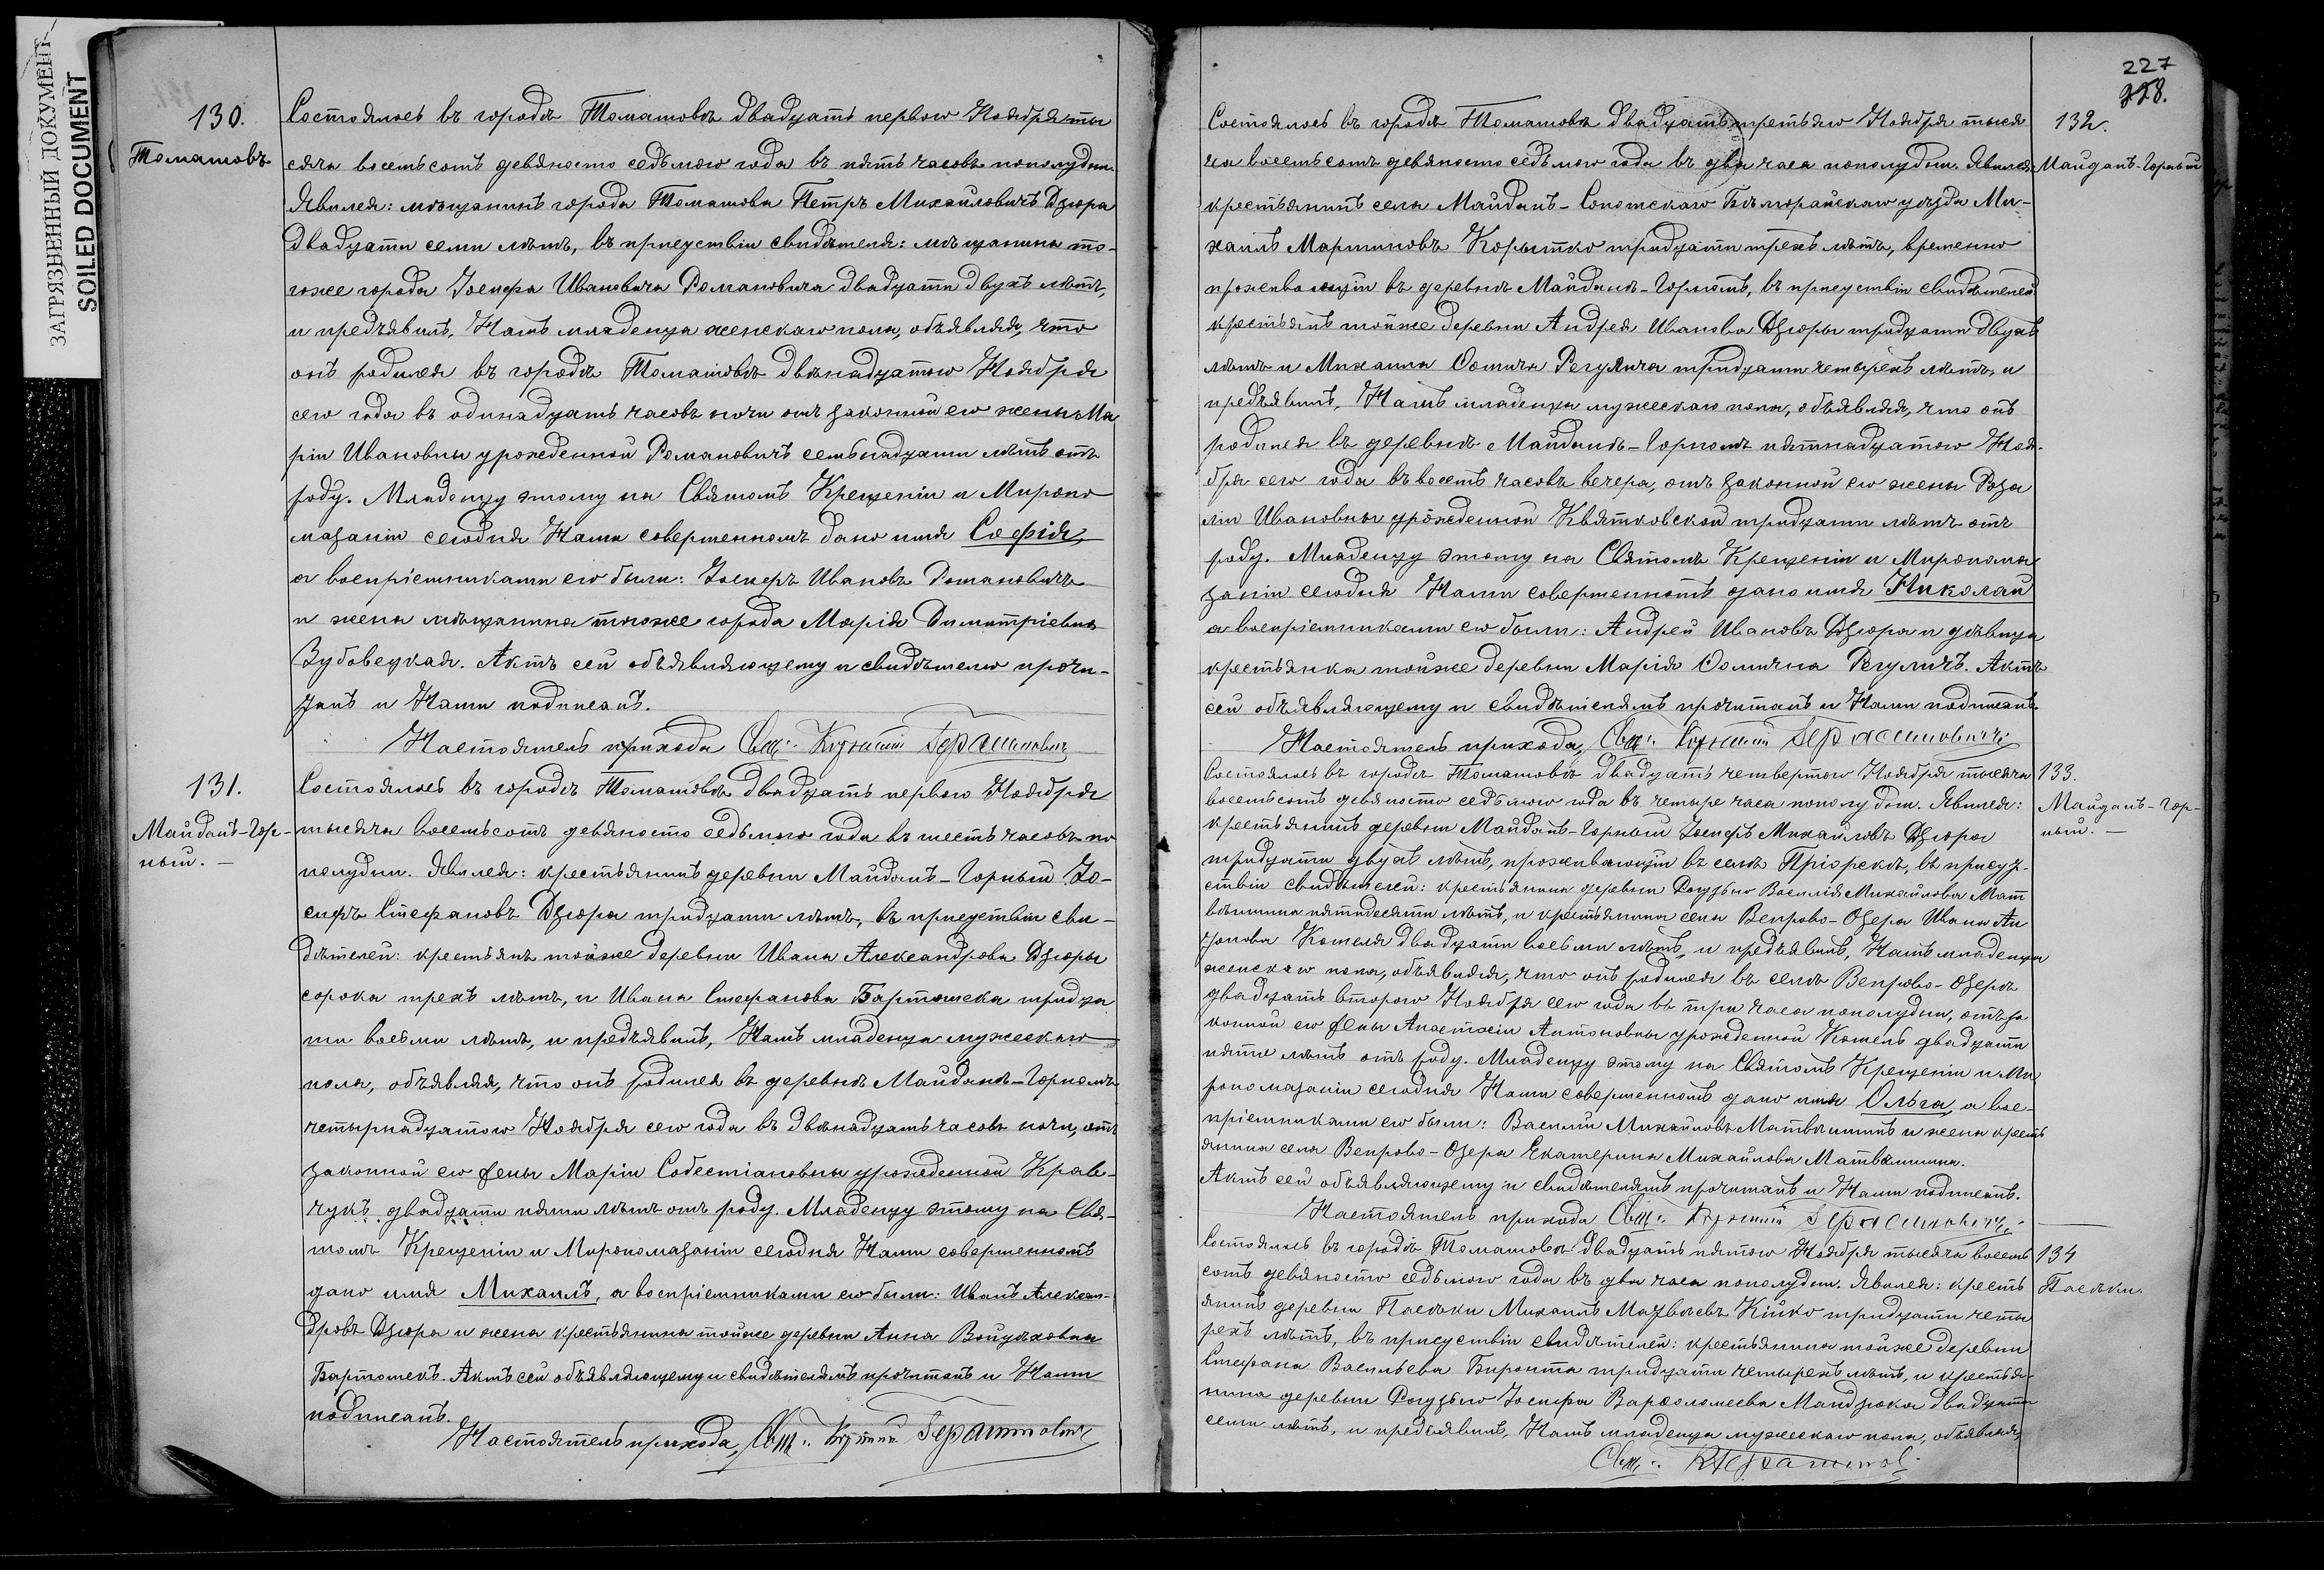 ЗАГРЯЗНЕННЫЙ ДОКУМЕНТ
SOILED DOCUMENT
130.
Томашовъ
Состоялось въ городѣ Томашовѣ двадцать перваго Ноября ты
сяча восемьсотъ девяносто седьмого года въ пять часовъ пополудни.
Явился: мѣщанинъ города Томашова Петръ Михайловичъ Дзюра
двадцати семи лѣтъ, въ присуствіи свидѣтеля: мѣщанина то-
гоже города Іосифа Ивановича Романовича двадцати двухъ лѣтъ,
и предъявилъ, Намъ младенца женскаго пола, объявляя, что
онъ родился въ городѣ Томашовѣ двѣнадцатого Ноября
сего года въ одинадцать часовъ ночи отъ законной его жены Ма
ріи Ивановны урожденной Романовичъ семьнадцати лѣтъ отъ
роду. Младенцу этому на Святомъ Крещеніи и Миропо
мазаніи сегодня Нами совершенномъ дано имя Софія,
а воспріемниками его были: Іосифъ Ивановъ Романовичъ
и жена мѣщанина тогоже города Марія Димитріевна
Зубовецкая. Актъ сей объявляющему и свидѣтелю прочи-
танъ и Нами подписанъ.
Настоятель прихода Свщ. Герасимовичъ
131.
Майданъ-Гор-
ный. —
Состоялось въ городѣ Томашовѣ двадцать перваго Ноября
тысяча восемьсотъ девяносто седьмого года въ шесть часовъ по
полудни. Явился: крестьянинъ деревни Майданъ-Горный Іо-
сифъ Стефановъ Дзюра тридцати лѣтъ, въ присуствіи сви-
дѣтелей: крестьянъ тойже деревни Ивана Александрова Дзюры
сорока трехъ лѣтъ, и Ивана Стефанова Бартошека тридца
ти восьми лѣтъ, и предъявилъ, Намъ младенца мужескаго
пола, объявляя, что онъ родился въ деревнѣ Майданѣ-Горномъ
четырнадцатого Ноября сего года въ двѣнадцать часовъ ночи, отъ
законной его жены Маріи Собестіановны урожденной Крав-
чукъ двадцати пяти лѣтъ отъ роду. Младенцу этому на Свя-
томъ Крещеніи и Миропомазаніи сегодня Нами совершенномъ
дано имя Михаилъ, а воспріемниками его были: Иванъ Алексан-
дровъ Дзюра и жена крестьянина тойже деревни Анна Войцѣховна
Бартошекъ. Актъ сей объявляющему и свидѣтелямъ прочитанъ и Нами
подписанъ.
Настоятель прихода, Свщ. Герасимовичъ
227
228.
132.
Майданъ-Горный
Состоялось въ городѣ Томашовѣ двадцать третьяго Ноября тыся
ча восемьсотъ девяносто седьмого года въ два часа пополудни. Явился
крестьянинъ села Майданъ-Сопотскаго Бѣлгорайскаго уѣзда Ми-
хаилъ Мартиновъ Корытко тридцати трехъ лѣтъ, временно
проживающій въ деревнѣ Майданѣ-Горномъ, въ присуствіи свидѣтелей
крестьянъ тойже деревни Андрея Иванова Дзюры тридцати двухъ
лѣтъ и Михаила Ѳомича Регулича тридцати четырехъ лѣтъ, и
предъявилъ, Намъ младенца мужескаго пола, объявляя, что онъ
родился въ деревнѣ Майданѣ-Горномъ пятнадцатого Ноя-
бря сего года въ восемь часовъ вечера, отъ законной его жены Роза
ліи Ивановны урожденной Квятковской тридцати лѣтъ отъ
роду. Младенцу этому на Святомъ Крещеніи и Миропома
заніи сегодня Нами совершенномъ дано имя Николай
а воспріемниками его были: Андрей Ивановъ Дзюра и дѣвица
крестьянка тойже деревни Марія Ѳомична Регуличъ. Актъ
сей объявляющему и свидѣтелямъ прочитанъ и Нами подписанъ.
Настоятель прихода, Свщ. Герасимовичъ
133.
Майданъ-Гор-
ный. —
Состоялось въ городѣ Томашовѣ двадцать четвертого Ноября тысяча
восемьсотъ девяносто седьмого года въ четыре часа пополудни. Явился:
крестьянинъ деревни Майданъ-Горный Іосифъ Михайловъ Дзюра
тридцати двухъ лѣтъ, проживающій въ селѣ Пріорекѣ, въ присут-
ствіи свидѣтелей: крестьянина деревни Василія Михайлова Мат
вѣишина пятидесяти лѣтъ, и крестьянина села Вепрово-Озера Ивана Ан
тонова Котеля двадцати восьми лѣтъ, и предъявилъ, Намъ младенца
женскаго пола, объявляя, что онъ родился въ селѣ Вепрово-Озерѣ
двадцать второго Ноября сего года въ три часа пополудни, отъ за
конной его жены Анастасіи Антоновны урожденной Котель двадцати
пяти лѣтъ отъ роду. Младенцу этому на Святомъ Крещеніи и Ми
ропомазаніи сегодня Нами совершенномъ дано имя Ольга, а вос-
пріемниками его были: Василій Михайловъ Матвѣишинъ и жена кресть
янина села Вепрово-Озера Екатерина Михайлова Матвѣишина.
Актъ сей объявляющему и свидѣтелямъ прочитанъ и Нами подписанъ.
Настоятель прихода Свщ. Герасимовичъ
134
Пасѣки.
Состоялось въ городѣ Томашовѣ двадцать пятого Ноября тысяча восемь
сотъ девяносто седьмого года въ два часа пополудни. Явился: кресть
янинъ деревни Пасѣки Михаилъ Матвѣевъ Кійко тридцати четы
рехъ лѣтъ, въ присуствіи свидѣтелей: крестьянина тойже деревни
Стефана Васильева тридцати четырехъ лѣтъ, и крестья-
нина деревни Іосифа Варѳоломеева Мандзюка двадцати
семи лѣтъ, и предъявилъ, Намъ младенца мужескаго пола, объявляя,
Свщ.